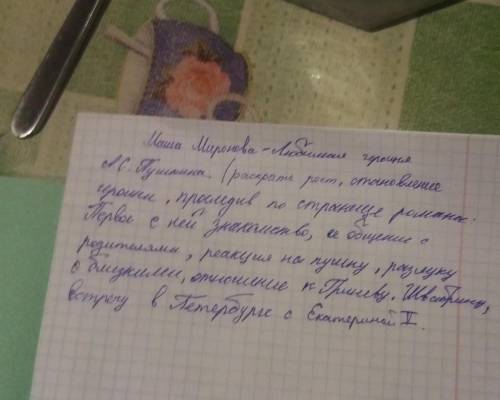 Маша Миронова - Любимая героиня
А.С. Пушкина. (раскрыть рост, становление
героини, проследив по странице романа:
Первое с ней знакомство, её общение с
родителями, реакция на пушку, разлуку
с близкими, отношение к Гриневу, Швабрину,
встречу в Петербурге с Екатериной II.